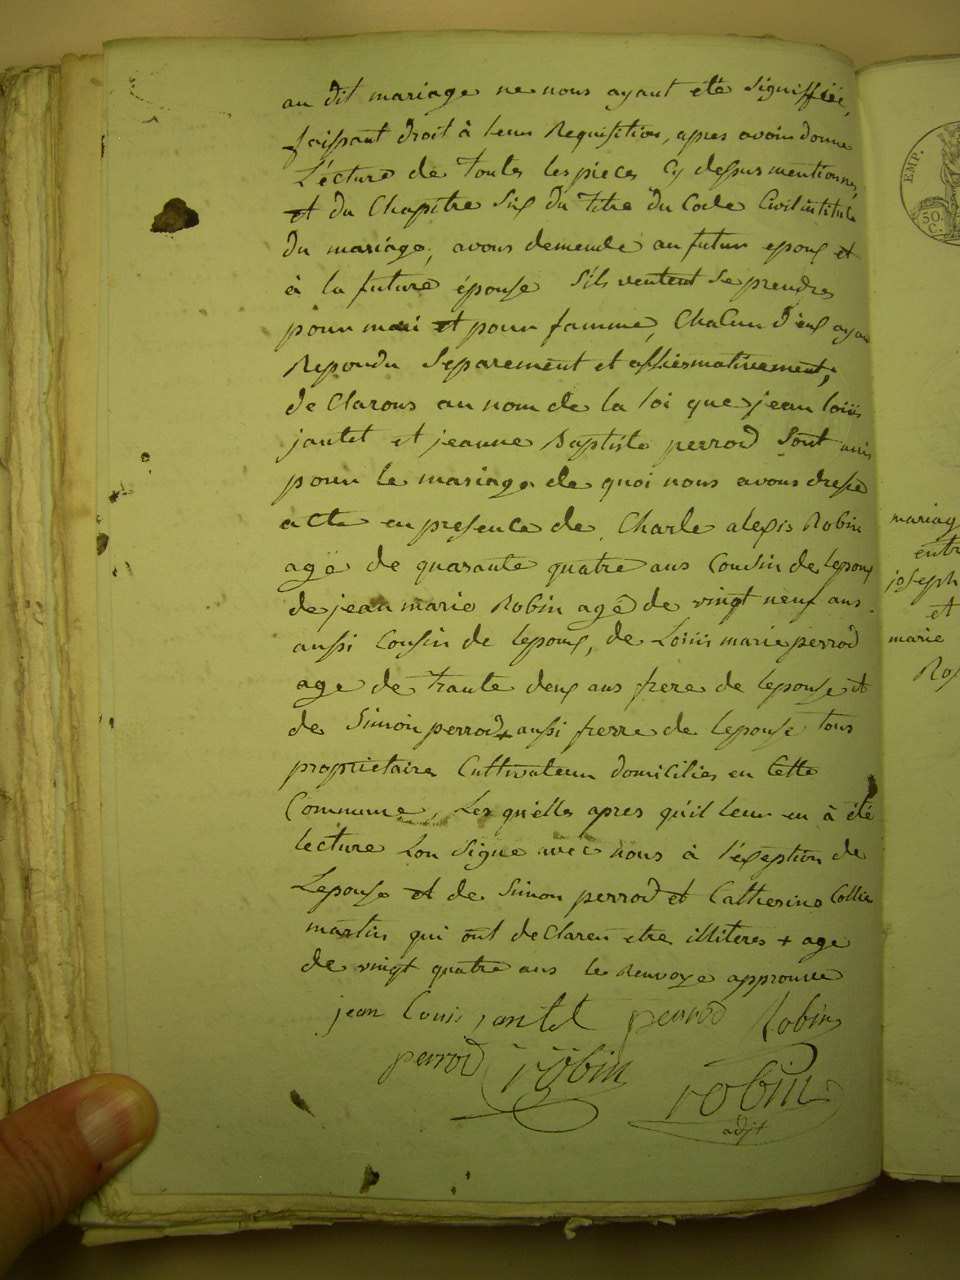 au dit mariage ne nous ayant été signiffiée,
faissant droit à leur Requisition, apres avoir donne
Lecture de toutes les pieces Cy dessus mentionnes,
et du Chapitre Six du titre du Code Civil intitule
du mariage, avons demende au futur epoux et
à la future épouse S'ils veutent se prendres
pour mari et pour famme, Chacun d'eux ayan
Repondu Separement et affirmativement,
de Clarons au nom de la loi que jean loüis
jantet et jeanne Baptiste perrod Sont unis
pour le mariage de quoi nous avons dresse
acte en presence de Charle alexis Robin
agé de quarante quatre ans Cousin de lepoux
de jean marie Robin agé de vingt neuf ans
aussi Cousin de lepoux, de Loüis marie perrod
age de trante deux ans frere de lepouse et
de Simon perrod + aussi frerre de lepouse tous
proprietaire Cultivateur domicilies en Cette
Commune, Les quelles apres qu'il leur en à été
lecture Lon signe avec nous à l'exeption de
Lepouse et de Simon perrod et Catherine Collin
martin qui ont de Claren etre illiteres + age
de vingt quatre ans le Renvoye approuve
jean louis jantet perrod Robin
perrod robin robin
adjt
EMP.
50.
C.
mariag
entr
joseph
et
marie
Ros